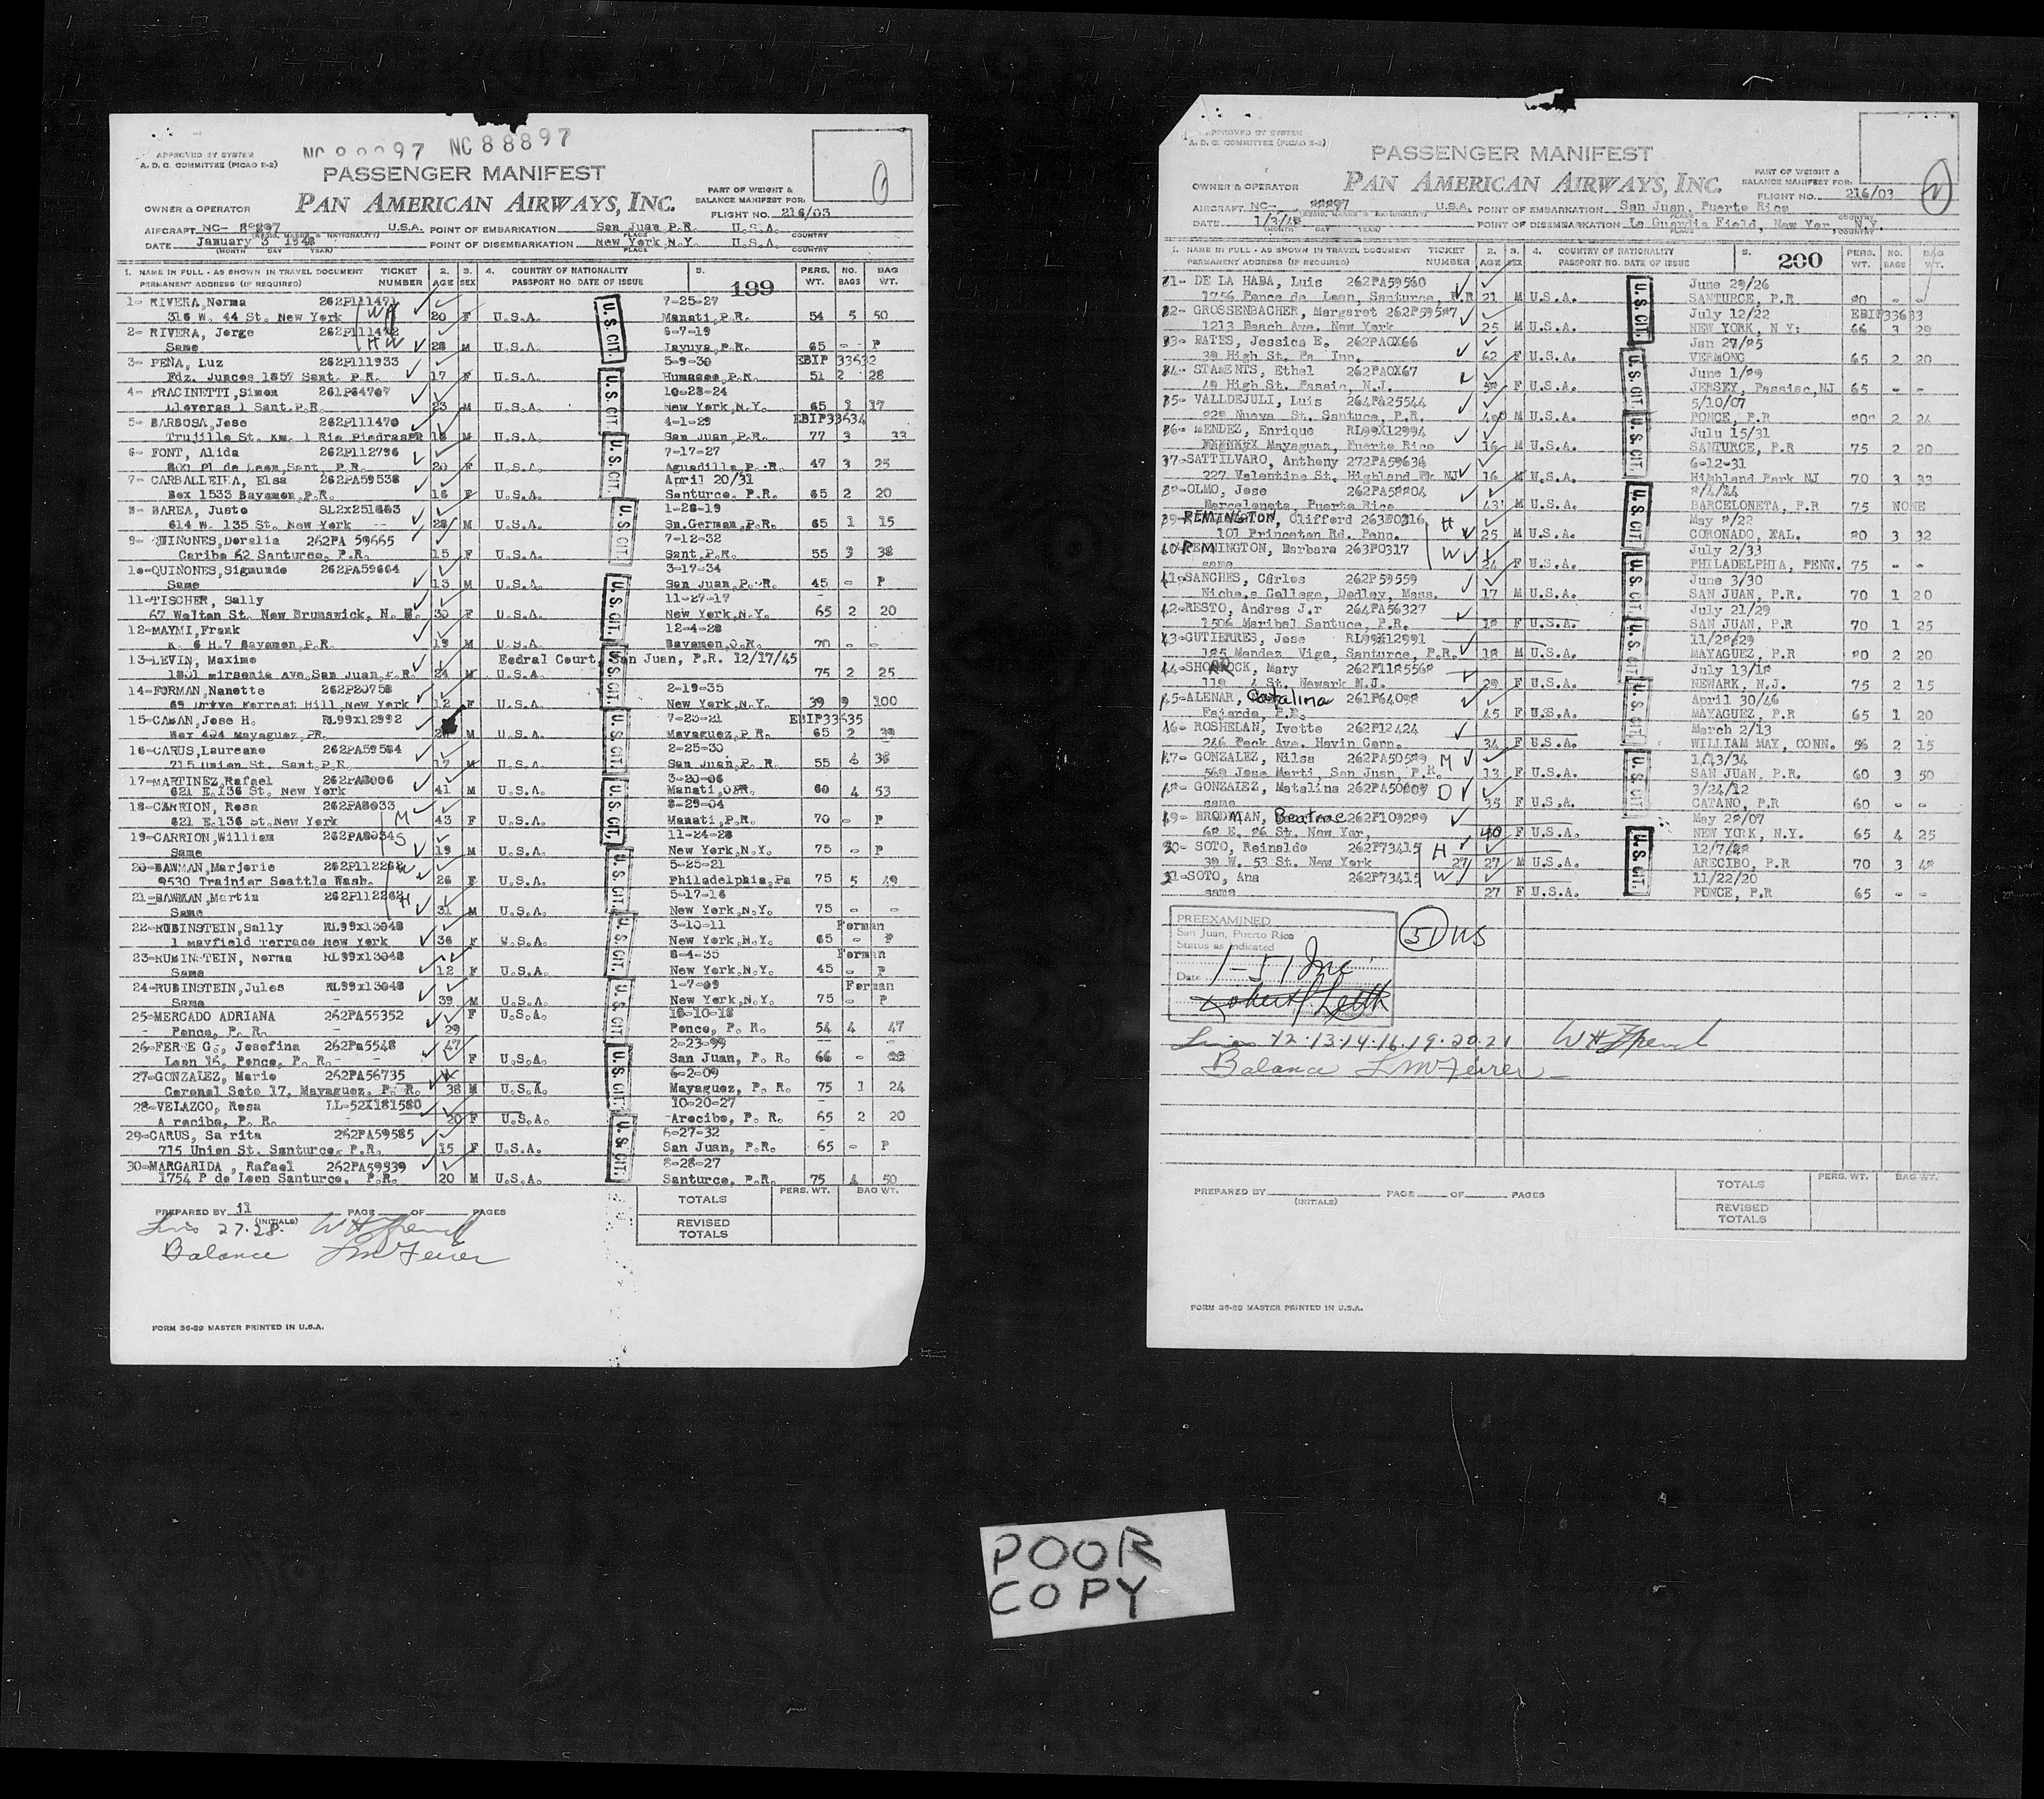 NC 88897
APPROVED BY SYSTEM
A. D. C. COMMITTEE (PICAO S-2)
PASSENGER MANIFEST
PAN AMERICAN AIRWAYS, INC.
PART OF WEIGHT &
BALANCE MANIFEST FOR:
FLIGHT NO. 216/03
OWNER & OPERATOR
AIRCRAFT NC- 88897 U.S.A. POINT OF EMBARKATION San Juan P.R. U.S.A.
DATE January 3 1948 POINT OF DISEMBARKATION New York N.Y. U.S.A.
(MONTH DAY YEAR) PLACE COUNTRY
1. NAME IN FULL - AS SHOWN IN TRAVEL DOCUMENT TICKET 2. 3. 4. COUNTRY OF NATIONALITY 5. PERS. NO. BAG
PERMANENT ADDRESS (IF REQUIRED) NUMBER AGE SEX PASSPORT NO. DATE OF ISSUE 199 WT. BAGS WT.
1- RIVERA, Norma 262P111471 7-25-27
316 W. 44 St. New York W 20 F U.S.A. Manati, P.R. 54 5 50
2- RIVERA, Jorge 262P111472 6-7-19
Same H 28 M U.S.A. Jayuya, P.R. 65 - P
3- PEÑA, Luz 262P111933 5-9-30 EBIP 33632
Fdz. Juncos 1857 Sant. P.R. 17 F U.S.A. Humacao, P.R. 51 2 28
4- FRACINETTI, Simon 261P64707 10-28-24
Lloveras 1 Sant. P.R. 23 M U.S.A. New York, N.Y. 65 1 17
5- BARBOSA, Jose 262P111470 4-1-29 EBIP33634
Trujillo St. Km. 1 Rio Piedras PR 18 M U.S.A. San Juan, P.R. 77 3 33
6- FONT, Alida 262P112796 7-17-27
800 Pl de Leon, Sant. P.R. 20 F U.S.A. Aguadilla P.R. 47 3 25
7- CARBALLEIRA, Elsa 262PA59538 April 20/31
Box 1533 Bayamon, P.R. 16 F U.S.A. Santurce, P.R. 65 2 20
8- BAREA, Justo SL2x251883 1-28-19
614 W. 135 St. New York 28 M U.S.A. Sn. German, P.R. 65 1 15
9- QUIÑONES, Doralia 262PA 59665 7-12-32
Caribe 62 Santurce, P.R. 15 F U.S.A. Sant. P.R. 55 3 38
10-QUIÑONES, Sigmundo 262PA59664 3-17-34
Same 13 M U.S.A. San Juan, P.R. 45 - P
11-TISCHER, Sally 11-27-17
67 Walton St. New Brunswick, N. 30 F U.S.A. New York, N.Y. 65 2 20
12-MAYMI, Frank 12-4-28
K. 6 H.7 Bayamon, P.R. 19 M U.S.A. Bayamon, O.R. 70 -
13-LEVIN, Maxime Fedral Court, San Juan, P.R. 12/17/45
1801 Mirsonia Ave. San Juan, P.R. 24 M U.S.A. 75 2 25
14-FORMAN, Nanette 262P20758 2-19-35
69 Drive Forrest Hill, New York 12 F U.S.A. New York, N.Y. 39 9 100
15-CAMAN, Jose H. RL99x12992 7-23-21 EBIP33635
Box 494 Mayaguez, PR. M U.S.A. Mayaguez, P.R. 65 2 39
16-CARUS, Laureano 262PA59584 2-25-30
715 Union St. Sant. P.R. 17 M U.S.A. San Juan, P. R. 55 4 36
17-MARTINEZ, Rafael 262PA8086 3-20-06
621 E. 136 St. New York 41 M U.S.A. Manati, P.R. 60 4 53
18-CARRION, Rosa 262PA8033 8-29-04
621 E. 136 St. New York M 43 F U.S.A. Manati, P.R. 70 - P
19-CARRION, William 262PA8034 S 11-24-28
Same 19 M U.S.A. New York, N.Y. 75 - P
20-BAWMAN, Marjorie 262P112262 W 5-25-21
9530 Trainier Seattle Wash. 26 F U.S.A. Philadelphia, Pa 75 5 49
21-BAWMAN, Martin 262P112262 H 5-17-16
Same 31 M U.S.A. New York, N.Y. 75 - -
22-RUBINSTEIN, Sally RL99x13048 3-10-11 Forman
1 Mayfield Terrace New York 36 F U.S.A. New York, N.Y. 65 - P
23-RUBINSTEIN, Norma RL99x13048 8-4-35 Forman
Same 12 F U.S.A. New York, N.Y. 45 - P
24-RUBINSTEIN, Jules RL99x13048 1-7-09 Forman
Same 39 M U.S.A. New York, N.Y. 75 - P
25-MERCADO ADRIANA 262PA55352 F U.S.A. 18-10-18
Ponce, P. R. 29 Ponce, P. R. 54 4 47
26-FERRE G., Josefina 262Pa5548 47 2-23-99
Leon 16, Ponce, P. R. F U.S.A. San Juan, P. R. 66 -
27-GONZALEZ, Mario 262PA56735 6-2-09
Coronel Soto 17, Mayaguez, P. R. 38 M U.S.A. Mayaguez, P. R. 75 1 24
28-VELAZCO, Rosa LL-52X181580 10-20-27
A recibo, P. R. 20 F U.S.A. Arecibo, P. R. 65 2 20
29-CARUS, Sa rita 262PA59585 6-27-32
715 Union St. Santurce, P.R. 15 F U.S.A. San Juan, P.R. 65 - P
30-MARGARIDA , Rafael 262PA59539 8-28-27
1754 P de Leon Santurce, P.R. 20 M U.S.A. Santurce, P.R. 75 4 50
U.S. CIT.
TOTALS PERS. WT. BAG WT.
PREPARED BY jl PAGE OF PAGES
(INITIALS)
REVISED
TOTALS
Lines 27.28.
Balance
FORM 36-89 MASTER PRINTED IN U.S.A.
APPROVED BY SYSTEM
A. D. C. COMMITTEE (PICAO S-2)
PASSENGER MANIFEST
PAN AMERICAN AIRWAYS, INC.
PART OF WEIGHT &
BALANCE MANIFEST FOR:
FLIGHT NO. 216/03
OWNER & OPERATOR
AIRCRAFT NC- 88897 U.S.A. POINT OF EMBARKATION San Juan, Puerto Rico
DATE 1/3/48 POINT OF DISEMBARKATION La Guardia Field, New Yor, N.Y.
(MONTH DAY YEAR) PLACE COUNTRY
1. NAME IN FULL - AS SHOWN IN TRAVEL DOCUMENT TICKET 2. 3. 4. COUNTRY OF NATIONALITY 5. PERS. NO. BAG
PERMANENT ADDRESS (IF REQUIRED) NUMBER AGE SEX PASSPORT NO. DATE OF ISSUE 200 WT. BAGS WT.
31- DE LA HABA, Luis 262PA59560 June 29/26
1756 Ponce de Leon, Santurce, P.R 21 M U.S.A. SANTURCE, P.R 80 - -
32- GROSSENBACHER, Margaret 262P59587 July 12/22 EBIP33633
1213 Beach Ave. New York 25 M U.S.A. NEW YORK, N Y: 66 3 29
33- BATES, Jessica E. 262PAOX66 Jan 27/85
39 High St. Pa Inn. 62 F U.S.A. VERMONG 65 2 20
34- STAMENTS, Ethel 262PAOX67 June 1/89
49 High St. Passic, N.J. F U.S.A. JERSEY, Passiac, NJ 65 - -
35- VALLDEJULI, Luis 264PA25544 5/10/07
928 Nueva St. Santuce, P.R. 40 M U.S.A. PONCE, P.R 80 2 24
36- MENDEZ, Enrique RL99X12994 Julu 15/31
Mayaguez, Puerto Rico 16 M U.S.A. SANTURCE, P.R 75 2 20
37-SATTILVARO, Anthony 272PA59634 6-12-31
227 Valentine St. Highland Pk NJ 16 M U.S.A. Highland Park NJ 70 3 33
38-OLMO, Jose 262PA58804 8/4/24
Barceloneta, Puerto Rico 43 M U.S.A. BARCELONETA, P.R 75 NONE
39-REMINGTON, Clifford 263P0316 H May 8/22
101 Princeton Rd. Penn. 25 M U.S.A. CORONADO, KAL. 80 3 32
40-REMINGTON, Barbara 263P0317 W July 2/33
same 24 F U.S.A. PHILADELPHIA, PENN. 75 - -
41-SANCHES, Carlos 262P59559 June 3/30
Nichols College, Dudley, Mass. 17 M U.S.A. SAN JUAN, P.R. 70 1 20
42-RESTO, Andres J.r 264PA56327 July 21/29
1506 Maribel Santuce, P.R. 18 F U.S.A. SAN JUAN, P.R 70 1 25
43-GUTIERRES, Jose RL99X12991 11/28/29
185 Mendez Vigo, Santurce, P.R. 18 M U.S.A. MAYAGUEZ, P.R 80 2 20
44-SHORROCK, Mary 262P1185568 July 13/18
119 4 St. Newark N.J. 29 F U.S.A. NEWARK, N.J. 75 2 15
45-ALENAR, Catalina 261P64098 April 30/46
Fajardo, P.R. 45 F U.S.A. MAYAGUEZ, P.R 65 1 20
46- ROSHELAN, Ivette 262P12424 March 2/13
246 Peck Ave. Havin Conn. 34 F U.S.A. WILLIAM MAY, CONN. 56 2 15
47- GONZALEZ, Nilsa 262PA50589 M 1/13/34
569 Jose Marti, San Juan, P.R. 13 F U.S.A. SAN JUAN, P.R. 60 3 50
48- GONZALEZ, Matalina 262PA50607 D 3/24/12
same 35 F U.S.A. CATANO, P.R 60 - -
49- BRODMAN, Beatrice 262F109289 May 28/07
68 E. 86 St. New Yor, 40 F U.S.A. NEW YORK, N.Y. 65 4 25
50- SOTO, Reinaldo 262F73415 H 12/7/
39 W. 53 St. New York 27 27 M U.S.A. ARECIBO, P.R 70 3 48
51-SOTO, Ana 262F73415 W 11/22/20
same 27 F U.S.A. PONCE, P.R 65 - -
U.S. CIT.
PREEXAMINED
San Juan, Puerto Rico
Status as indicated
1-51 Inc
Date
51 US
Lines 12.13.14.16.19.20.21
Balance
TOTALS PERS. WT. BAG WT.
PREPARED BY PAGE OF PAGES
(INITIALS)
REVISED
TOTALS
FORM 36-89 MASTER PRINTED IN U.S.A.
POOR
COPY